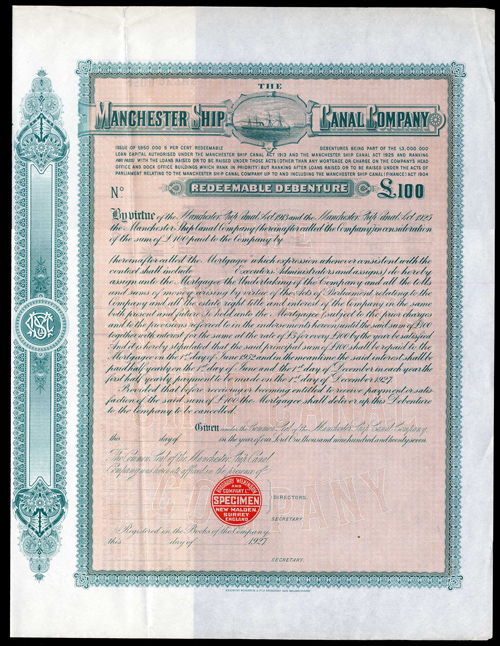 THE
MANCHESTER SHIP CANAL COMPANY
ISSUE OF £950,000 5 PER CENT. REDEEMABLE DEBENTURES BEING PART OF THE £3,000,000
LOAN CAPITAL AUTHORISED UNDER THE MANCHESTER SHIP CANAL ACT 1913 AND THE MANCHESTER SHIP CANAL ACT 1925 AND RANKING
PARI PASSU WITH THE LOANS RAISED OR TO BE RAISED UNDER THOSE ACTS (OTHER THAN ANY MORTGAGE OR CHARGE ON THE COMPANY'S HEAD
OFFICE AND DOCK OFFICE BUILDINGS WHICH RANK IN PRIORITY) BUT RANKING AFTER LOANS RAISED OR TO BE RAISED UNDER THE ACTS OF
PARLIAMENT RELATING TO THE MANCHESTER SHIP CANAL COMPANY UP TO AND INCLUDING THE MANCHESTER SHIP CANAL (FINANCE) ACT 1904
REDEEMABLE DEBENTURE
No £100
By virtue of the Manchester Ship Canal Act 1913 and the Manchester Ship Canal Act 1925
the Manchester Ship Canal Company (hereinafter called the Company) in consideration
of the sum of £100 paid to the Company by
(hereinafter called the Mortgagee which expression whenever consistent with the
context shall include Executors Administrators and assigns) do hereby
assign unto the Mortgagee the Undertaking of the Company and all the tolls
and sums of money arising by virtue of the Acts of Parliament relating to the
Company and all the estate right title and interest of the Company in the same
both present and future To hold unto the Mortgagee (subject to the prior charges
and to the provisions referred to in the indorsements hereon) until the said sum of £100
together with interest for the same at the rate of £5 for every £100 by the year be satisfied
And it is hereby stipulated that the said principal sum of £100 shall be repaid to the
Mortgagee on the 1st day of June 1952 and in the meantime the said interest shall be
paid half yearly on the 1st day of June and the 1st day of December in each year the
first half yearly payment to be made on the 1st day of December 1927
Provided that before receiving or becoming entitled to receive payment or satis
faction of the said sum of £100 the Mortgagee shall deliver up this Debenture
to the Company to be cancelled.
Given under the Common Seal of the Manchester Ship Canal Company
this day of in the year of our Lord One thousand nine hundred and twenty seven
The Common Seal of the Manchester Ship Canal
Company was hereunto affixed in the presence of
DIRECTORS.
SECRETARY
BRADBURY WILKINSON
AND
COMPANY LD
SPECIMEN
NEW MALDEN,
SURREY
ENGLAND
COMPANY
Registered in the Books of the Company
this day of 1927
SECRETARY.